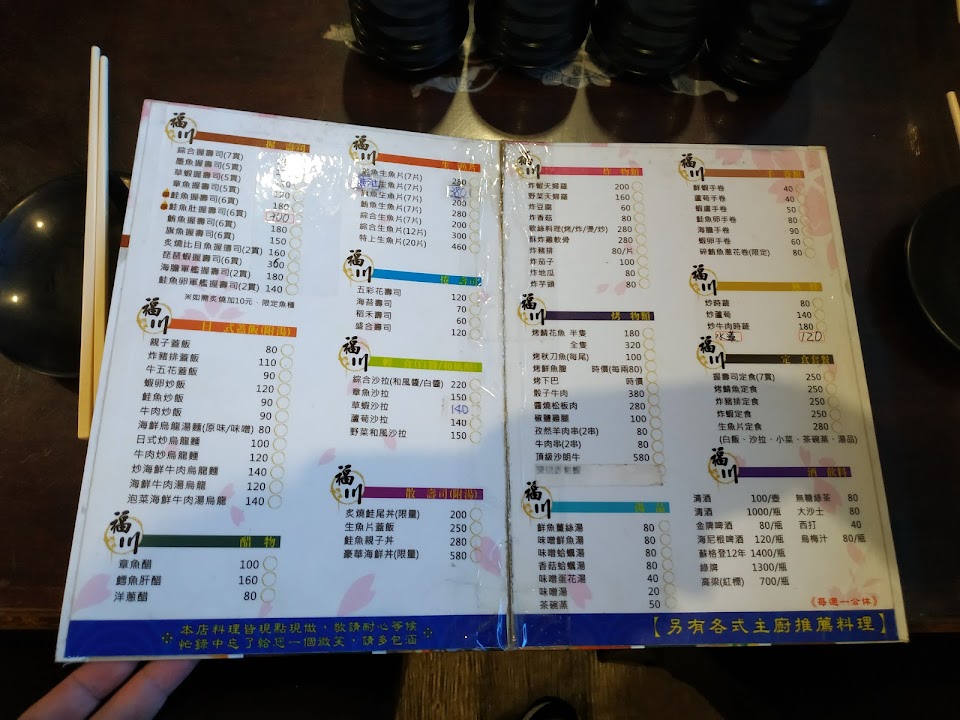 福川
握壽司
綜合握壽司(7貫)
墨魚握壽司(5貫) 180
草蝦握壽司(5貫) 160
章魚握壽司(5貫) 180
鮭魚握壽司(6貫) 180
鮭魚肚握壽司(6貫) 300
鮪魚握壽司(6貫) 180
旗魚握壽司(6貫) 150
炙燒比目魚握擣司(2貫) 160
琵琶蝦握壽司(6貫)
海膽軍艦握壽司(2貫) 180
鮭魚卵軍艦握壽司(2貫) 140
※如需炙燒加10元、限定魚種
福川
日式蓋飯(附湯)
親子蓋飯 80
炸豬排蓋飯 110
牛五花蓋飯 90
蝦卵炒飯 120
鮭魚炒飯 90
牛肉炒飯 90
海鮮烏龍湯麵(原味/味噌) 80
日式炒烏龍麵 100
牛肉炒烏龍麵 120
炒海鮮牛肉烏龍麵 140
海鮮牛肉湯烏龍 120
泡菜海鮮牛肉湯烏龍 140
福川
醋物
章魚醋 100
鱈魚肝醋 160
洋蔥醋 80
福川
生魚片
生魚片(7片) 250
生魚片(7片)
生魚片(7片)
鮪魚生魚片(7片) 200
綜合生魚片(7片) 280
綜合生魚片(12片) 300
特上生魚片(20片) 460
福川
捲壽司
五彩花壽司 120
海苔壽司 70
稻禾壽司 60
盛合壽司 120
福川
綜合沙拉(和風醬/白醬) 220
章魚沙拉 150
草蝦沙拉 140
蘆筍沙拉 140
野菜和風沙拉 150
福川
散壽司(附湯)
炙燒鮭尾丼(限量) 200
生魚片蓋飯 250
鮭魚親子丼 280
豪華海鮮丼(限量) 580
本店料理皆現點現做,敬請耐心等候
忙錄中忘了給您一個微笑,請多包涵
福川
炸物類
炸蝦天婦羅 200
野菜天婦羅 160
炸豆腐 60
炸香菇 80
軟絲料理(烤/炸/燙/炒) 280
酥炸雞軟骨 280
炸豬排 80/片
炸茄子 100
炸地瓜 80
炸芋頭 80
福川
烤物類
烤鯖花魚 半隻 180
全隻 320
烤秋刀魚(每尾) 100
烤鮮魚腹 時價(每兩80)
烤下巴 時價
骰子牛肉 380
醬燒松板肉 280
椒鹽雞腿 100
孜然羊肉串(2串) 80
牛肉串(2串) 80
頂級沙朗牛 580
福川
湯品
鮮魚薑絲湯 80
味噌鮮魚湯 80
味噌蛤蠣湯 80
香菇蛤蠣湯 80
味噌蛋花湯 40
味噌湯 20
茶碗蒸 50
福川
手卷
鮮蝦手卷 40
蘆筍手卷 40
蝦蘆手卷 50
鮭魚卵手卷 80
海膽手卷 90
蝦卵手卷 60
碎鮪魚蔥花卷(限定) 80
福川
炒時蔬 80
炒蘆筍 140
炒牛肉時蔬 180
120
福川
定食套餐
握壽司定食(7貫) 250
烤鯖魚定食 250
炸豬排定食 250
炸蝦定食 250
生魚片定食 280
(白飯、沙拉、小菜、茶碗蒸、湯品)
福川
酒飲料
清酒 100/壺 無糖綠茶 80
清酒 1000/瓶 大沙士 80
金牌啤酒 80/瓶 西打 40
海尼根啤酒 120/瓶 烏梅汁 80/瓶
蘇格登12年 1400/瓶
綠牌 1300/瓶
高梁(紅標) 700/瓶
《每週一公休》
【另有各式主廚推薦料理】